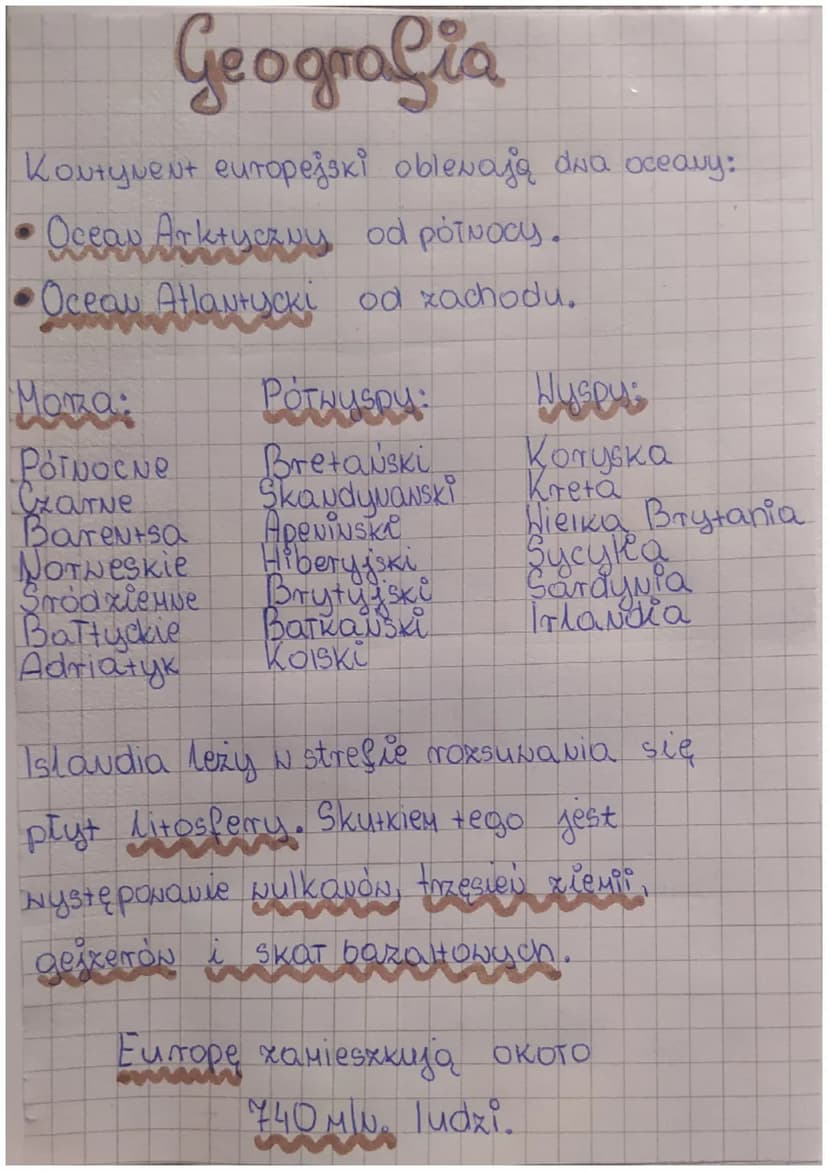 Geografia
Kontynent europejski oblewają dwa oceany:
• Ocean Arktyczny od północy.
• Ocean Atlantycki od zachodu.
Morza: Półwyspy: Wyspy:
Północne Bretański Korsyka
Czarne Skandynawski Kreta
Barentsa Apeniński Wielka Brytania
Norweskie Hiberyjski Sycylia
Śródziemne Brytyjski Sardynia
Bałtyckie Bałkański Irlandia
Adriatyk Kolski
Islandia leży w strefie rozsuwania się
płyt litosfery. Skutkiem tego jest
występowanie wulkanów, trzęsień ziemii,
gejzerów i skał bazaltowych.
Europę zamieszkują około
740 mln. ludzi.